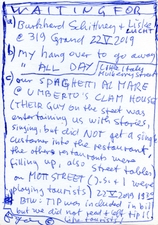 WAITING FOR
a) Burkhard Schittny + Liske
LICHT
@ 319 Grand 22 V 2019
b) my hang over to go away
" ALL DAY " (Little Italy
Mulberry Street
c) our SPAGHETTI AL MARE
@ UMBERTO'S CLAM HOUSE
(THEIR GUY on the street was
entertaining us with stories,
singing, but did NOT get a single
customer into the restaurant,
the others restaurants were
filling up, also street tables
on MOTT STREET). Sis + I were
playing tourists 22 V 2019
BTW: TIP was included in bill
but we did not read + left tip!!
like tourists!